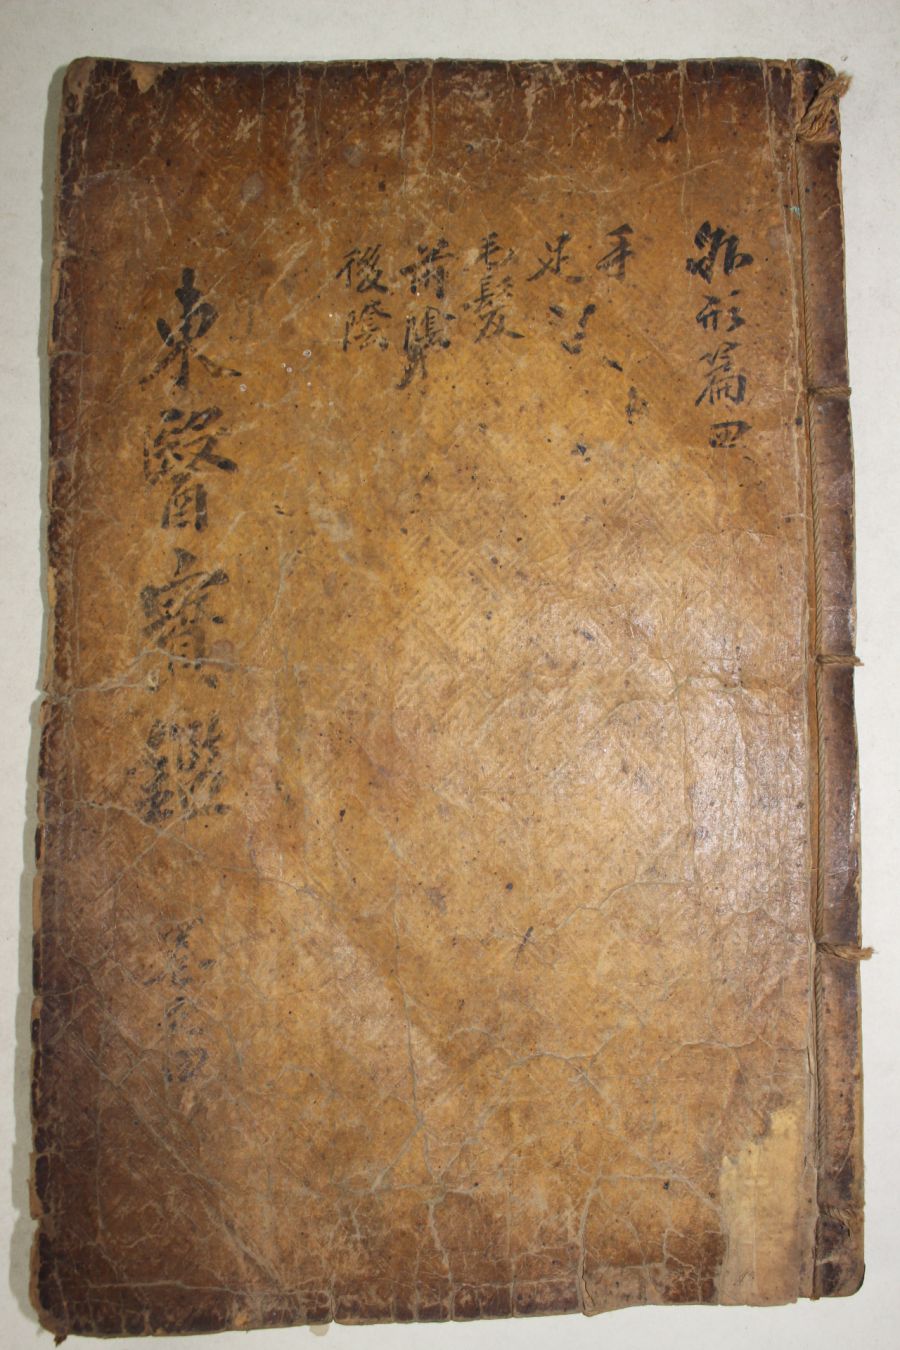 外形篇四
手
足
毛髮
前陰
後陰
東醫寶鑑
卷之四